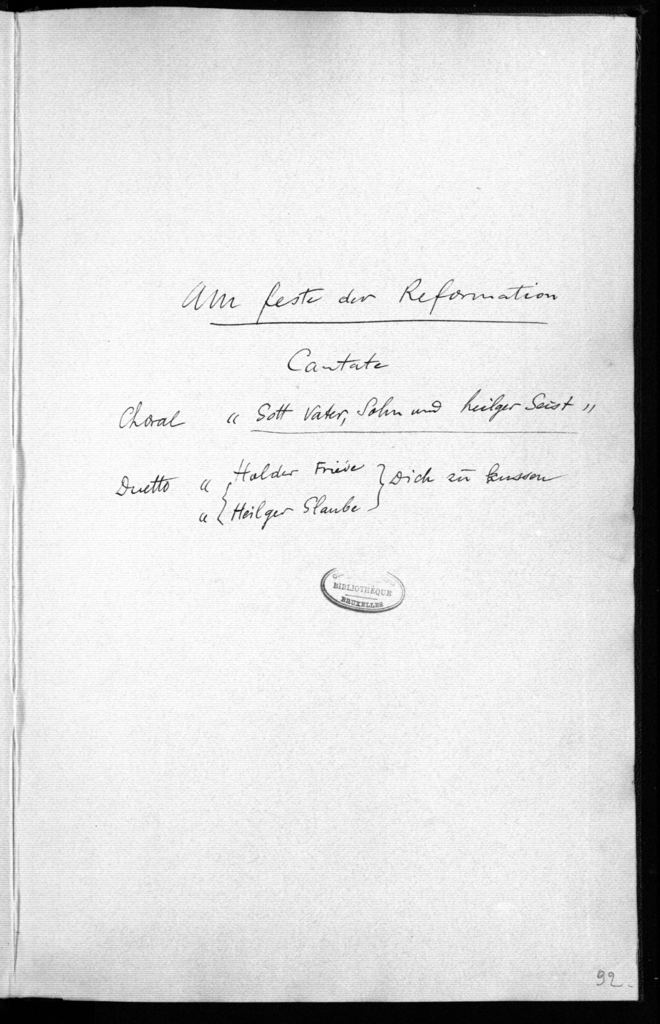 Am feste der Reformation
Cantate
Choral " Gott Vater, Sohn und heilger Geist "
Duetto " Holder Friede } Dich zu küssen
" { Heilger Glaube
BIBLIOTHÈQUE
BRUXELLES
92.